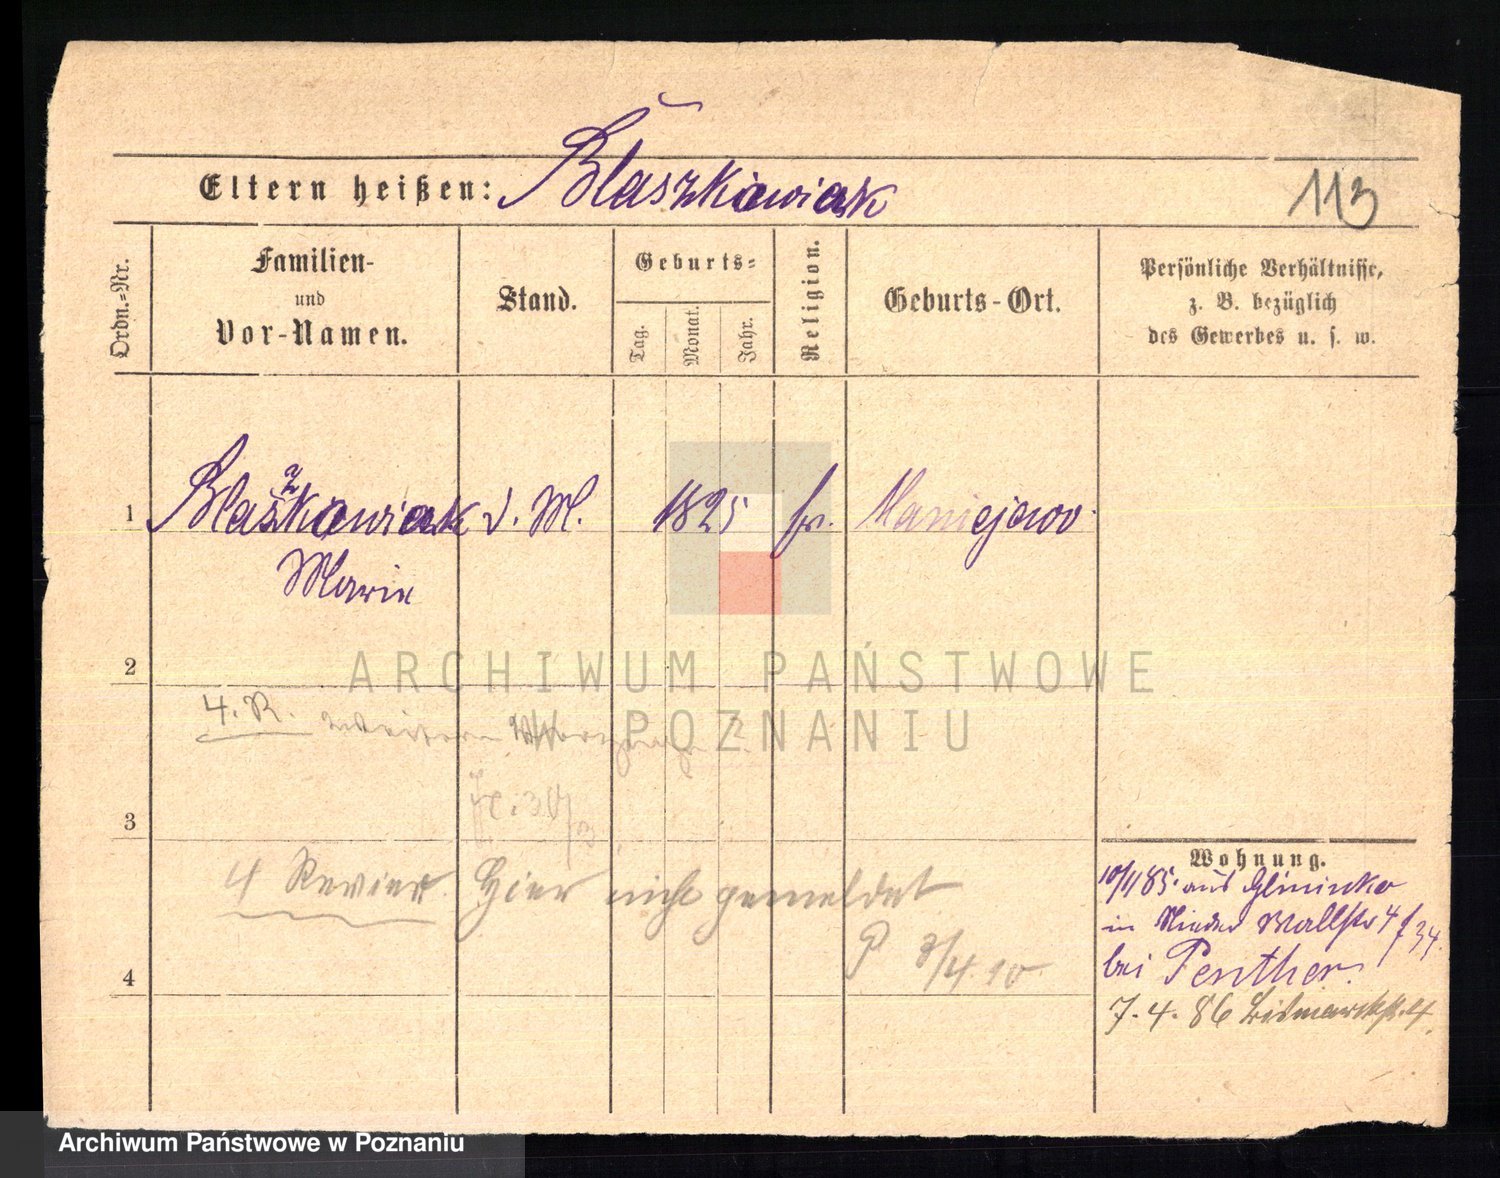 Eltern heißen: Blaszkiewiak
113
Ordn.-Nr.
Familien-
und
Vor-Namen.
Stand.
Geburts-
Tag.
Monat.
Jahr.
Religion.
Geburts-Ort.
Persönliche Verhältnisse,
z. B. bezüglich
des Gewerbes u. s. w.
1 d. M. 1825 Maniejewo
Marie
2
ARCHIWUM PAŃSTWOWE
W POZNANIU
4. R.
3
4 Revier Hier nicht gemeldet
P 8/4.10
4
Wohnung.
10/11 85. aus Glininko
in Nieder Wallstr 4
bei Penther.
7. 4. 86 Bismarckstr. 4.
Archiwum Państwowe w Poznaniu